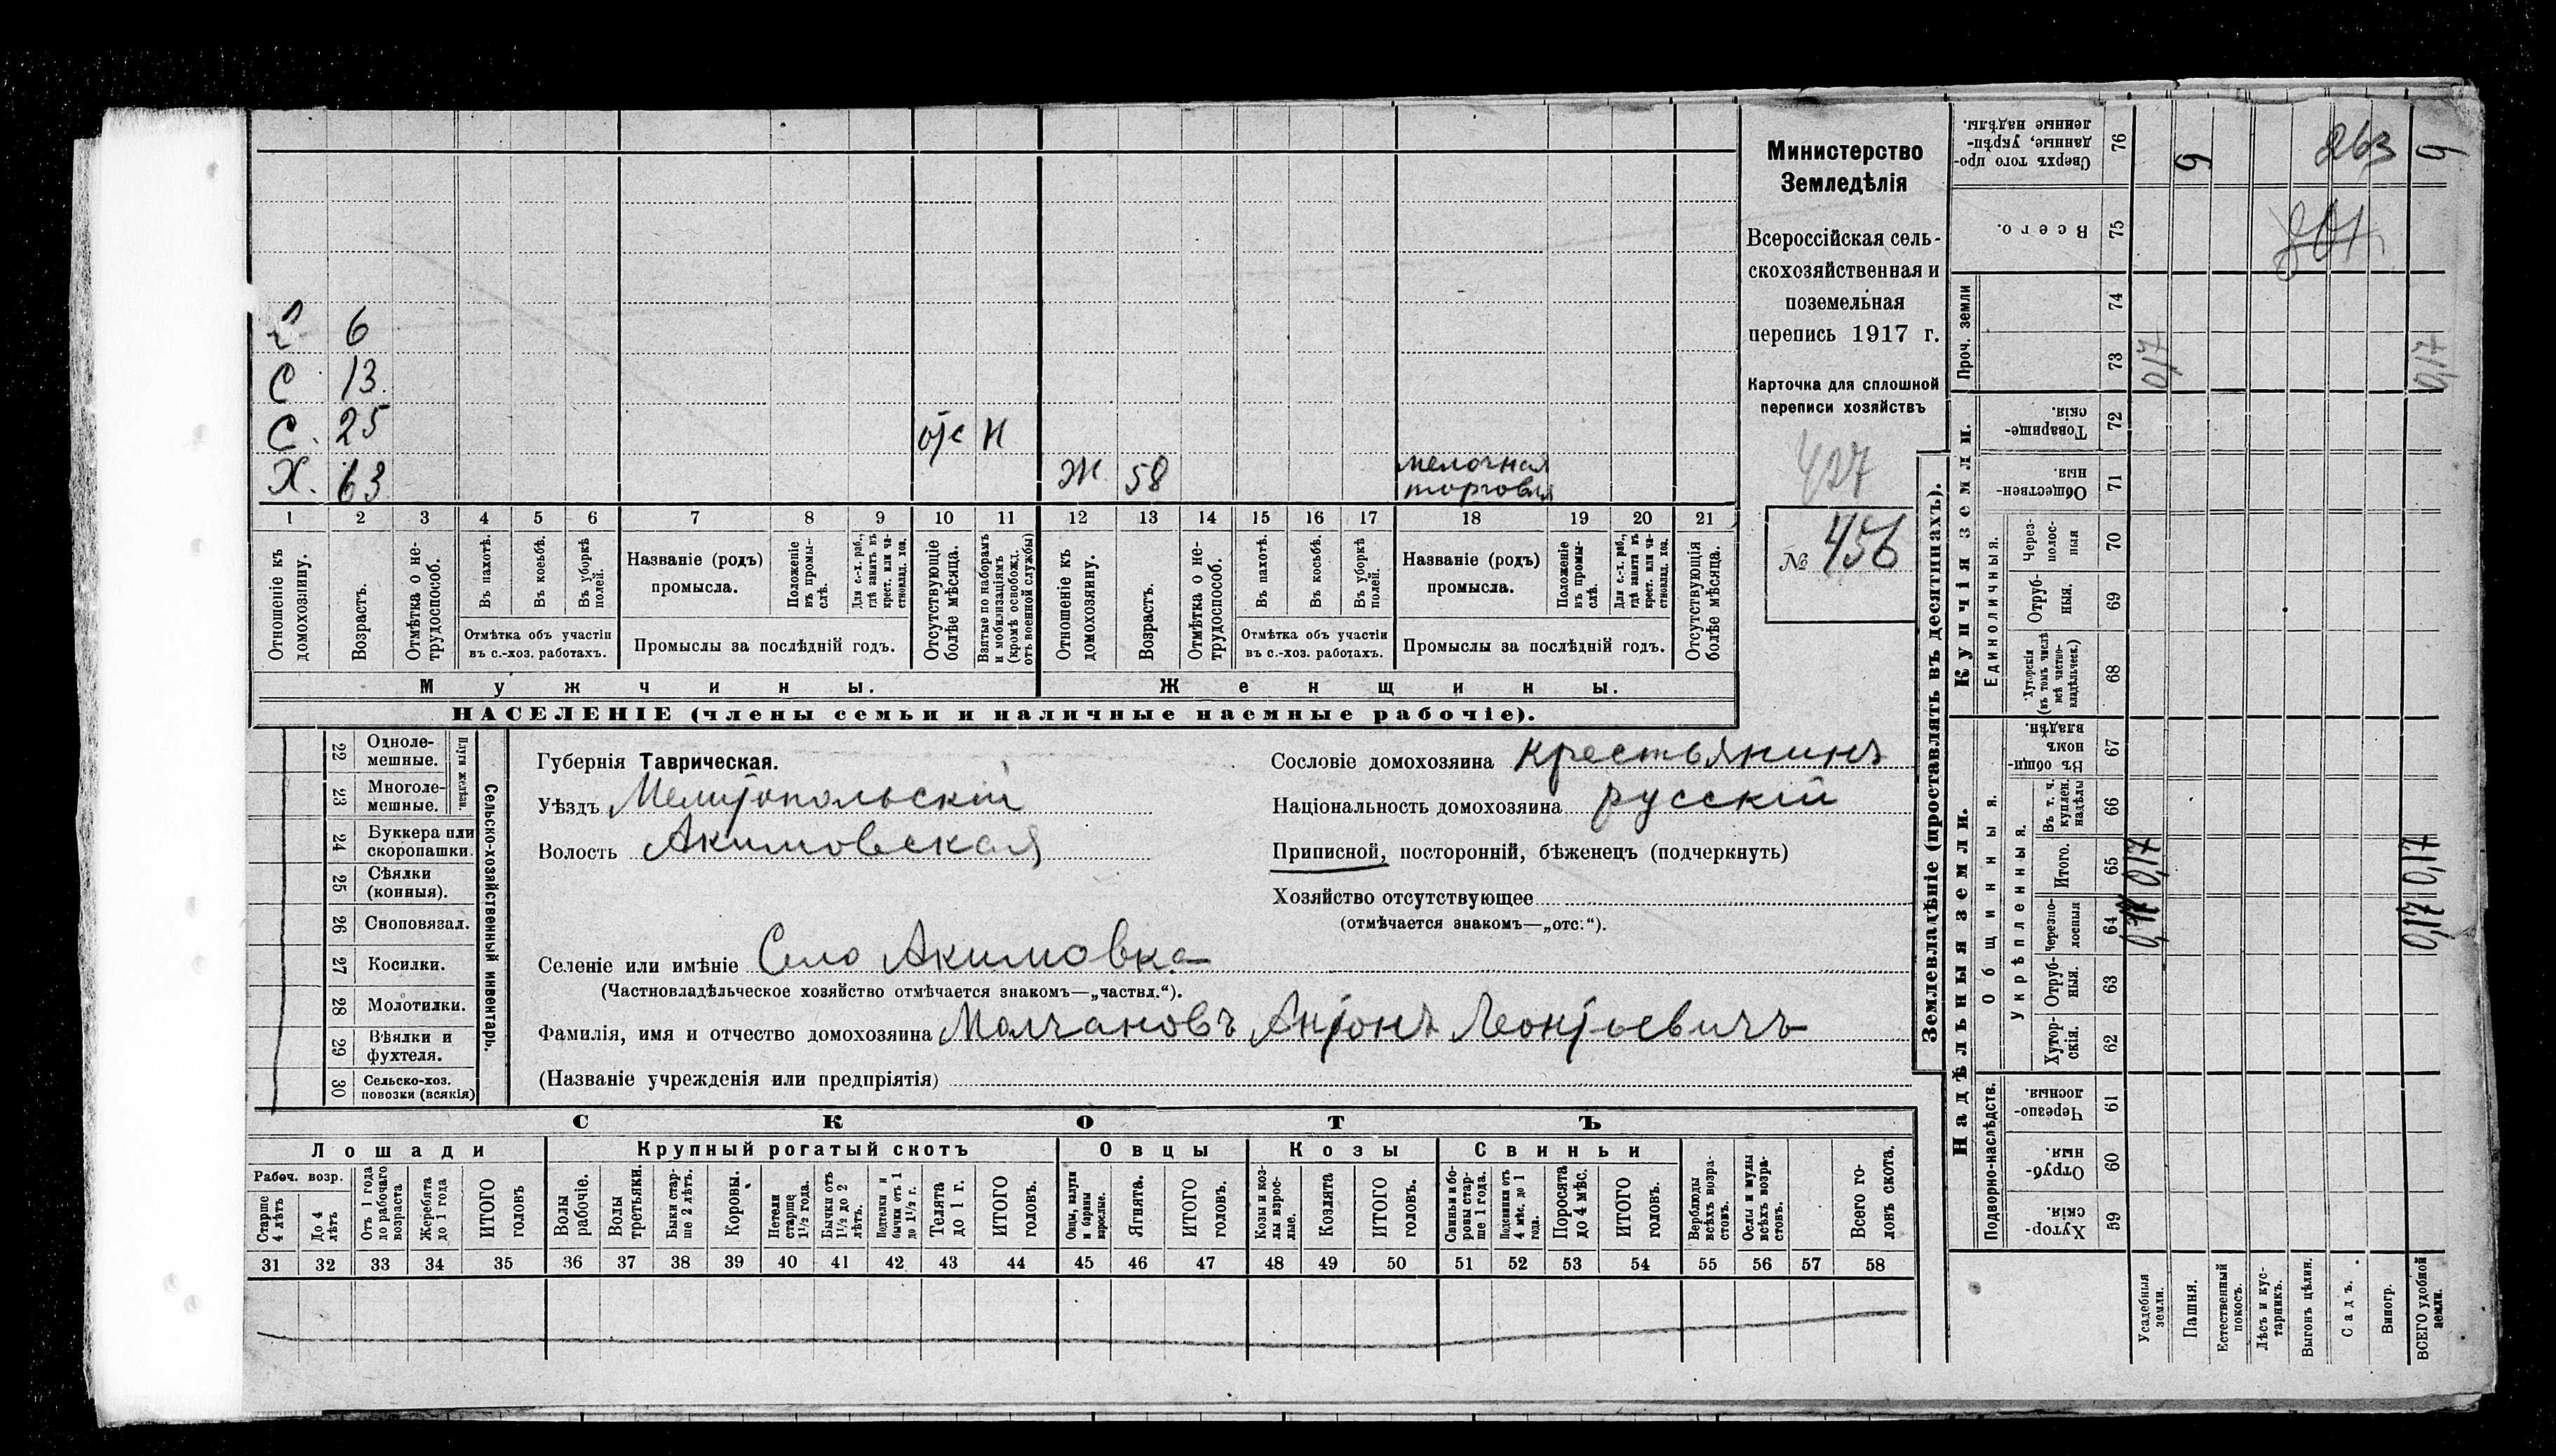 Министерство
Земледѣлія
Всероссійская сель-
скохозяйственная и
поземельная
перепись 1917 г.
Карточка для сплошной
переписи хозяйствъ
427
№ 456
6
С 13
С. 25 отс Н
Х. 63 Ж. 58 мелочная торговля
1 2 3 4 5 6 7 8 9 10 11 12 13 14 15 16 17 18 19 20 21
Отношеніе къ домохозяину.
Возрастъ.
Отмѣтка о не-трудоспособ.
Въ пахотѣ.
Въ косьбѣ.
Въ уборкѣ полей.
Отмѣтка объ участіи въ с.-хоз. работахъ.
Названіе (родъ) промысла.
Положеніе въ промы-слѣ.
Для с.-х. раб., гдѣ занятъ въ крест. или ча-стновлад. хоз.
Промыслы за послѣдній годъ.
Отсутствующіе болѣе мѣсяца.
Взятые по наборамъ и мобилизаціямъ (кромѣ освобожд. отъ военной службы)
Отношеніе къ домохозяину.
Возрастъ.
Отмѣтка о не-трудоспособ.
Въ пахотѣ.
Въ косьбѣ.
Въ уборкѣ полей.
Отмѣтка объ участіи въ с.-хоз. работахъ.
Названіе (родъ) промысла.
Положеніе въ промы-слѣ.
Для с.-х. раб., гдѣ занята въ крест. или ча-стновлад. хоз.
Промыслы за послѣдній годъ.
Отсутствующія болѣе мѣсяца.
Мужчины. Женщины.
НАСЕЛЕНІЕ (члены семьи и наличные наемные рабочіе).
22 Одноле-мешные.
23 Многоле-мешные.
Плуги желѣзн.
24 Буккера или скоропашки.
25 Сѣялки (конныя).
26 Сноповязал.
27 Косилки.
28 Молотилки.
29 Вѣялки и фухтеля.
30 Сельско-хоз. повозки (всякія)
Сельско-хозяйственный инвентарь.
Губернія Таврическая.
Уѣздъ Мелитопольскій
Волость Акимовская
Сословіе домохозяина крестьянинъ
Національность домохозяина русскій
Приписной, посторонній, бѣженецъ (подчеркнуть)
Хозяйство отсутствующее
(отмѣчается знакомъ—„отс:“).
Селеніе или имѣніе Село Акимовка
(Частновладѣльческое хозяйство отмѣчается знакомъ—„частвл.“).
Фамилія, имя и отчество домохозяина Малчановъ Антонъ Леонтьевичъ
(Названіе учрежденія или предпріятія)
СКОТЪ
Лошади Крупный рогатый скотъ Овцы Козы Свиньи
Рабоч. возр.
Старше 4 лѣтъ
До 4 лѣтъ
Отъ 1 года до рабочаго возраста
Жеребята до 1 года
ИТОГО головъ
Волы рабочіе.
Волы третьяки.
Быки стар-ше 2 лѣтъ.
Коровы.
Нетели старше 1½ года.
Бычки отъ 1½ до 2 лѣтъ.
Подтелки и бычки отъ 1 до 1½ г.
Телята до 1 г.
ИТОГО головъ.
Овцы, валухи и бараны взрослые.
Ягнята.
ИТОГО головъ.
Козы и коз-лы взрос-лые.
Козлята
ИТОГО головъ.
Свиньи и бо-ровы стар-ше 1 года.
Подсвинки отъ 4 мѣс. до 1 года.
Поросята до 4 мѣс.
ИТОГО головъ.
Верблюды всѣхъ возра-стовъ.
Ослы и мулы всѣхъ возра-стовъ.
Всего го-ловъ скота.
31 32 33 34 35 36 37 38 39 40 41 42 43 44 45 46 47 48 49 50 51 52 53 54 55 56 57 58
Землевладѣніе (проставлять въ десятинахъ).
Надѣльныя земли. Купчія земли. Проч. земли
Подворно-наслѣдств.
Общинныя.
Укрѣпленныя.
Единоличныя.
Сверхъ того про-данные, укрѣп-ленные надѣлы. 76 9 263 9
Всего. 75 201
74
73 0,17 0,17
Товарище-скія. 72
Обществен-ныя 71
Через-полос-ныя 70
Отруб-ныя. 69
Хуторскія (въ томъ числѣ всѣ частно-владѣльческ.) 68
Въ общин-номъ владѣн. 67
Въ т. ч. куплен. надѣлы 66
Итого. 65 0,17 0,17
Черезпо-лосныя 64 0,17 0,17
Отруб-ныя. 63
Хутор-скія. 62
Черезпо-лосныя. 61
Отруб-ныя. 60
Хутор-скія. 59
Усадебныя земли.
Пашня.
Естественный покосъ.
Лѣсъ и кус-тарникъ.
Выгонъ цѣлин.
Садъ.
Виногр.
ВСЕГО удобной земли.